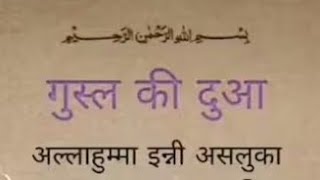 بِسْمِ اللهِ الرَّحْمٰنِ الرَّحِيْمِ
गुस्ल की दुआ
अल्लाहुम्मा इन्नी असलुका